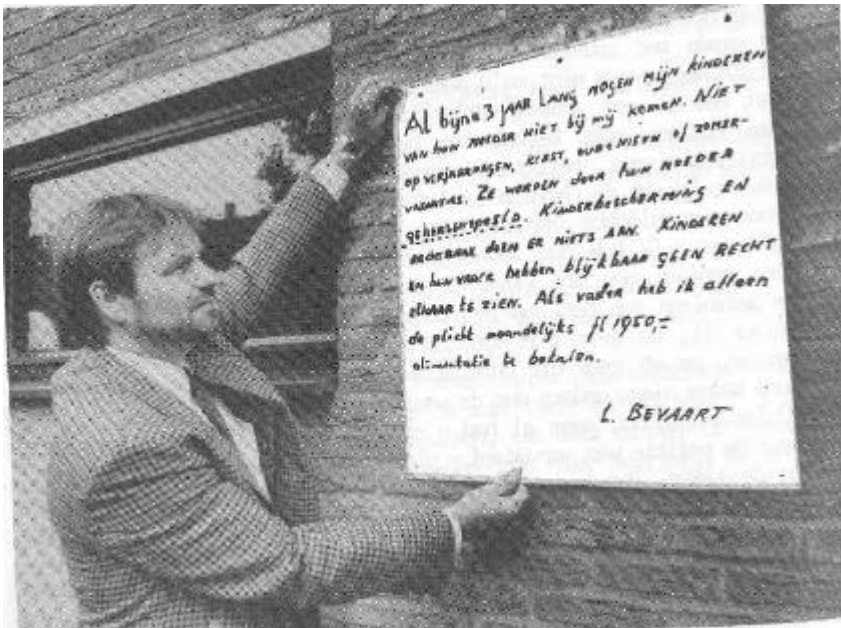 Al bijna 3 jaar lang mogen mijn kinderen
van hun moeder niet bij mij komen. Niet
op verjaardagen, kerst, oud & nieuw of zomer-
vakanties. Ze worden door hun moeder
gehersenspoeld. Kinderbescherming en
rechtbank doen er niets aan. Kinderen
en hun vader hebben blijkbaar geen recht
elkaar te zien. Als vader heb ik alleen
de plicht maandelijks fl 1950,=
alimentatie te betalen.
L. BEVAART